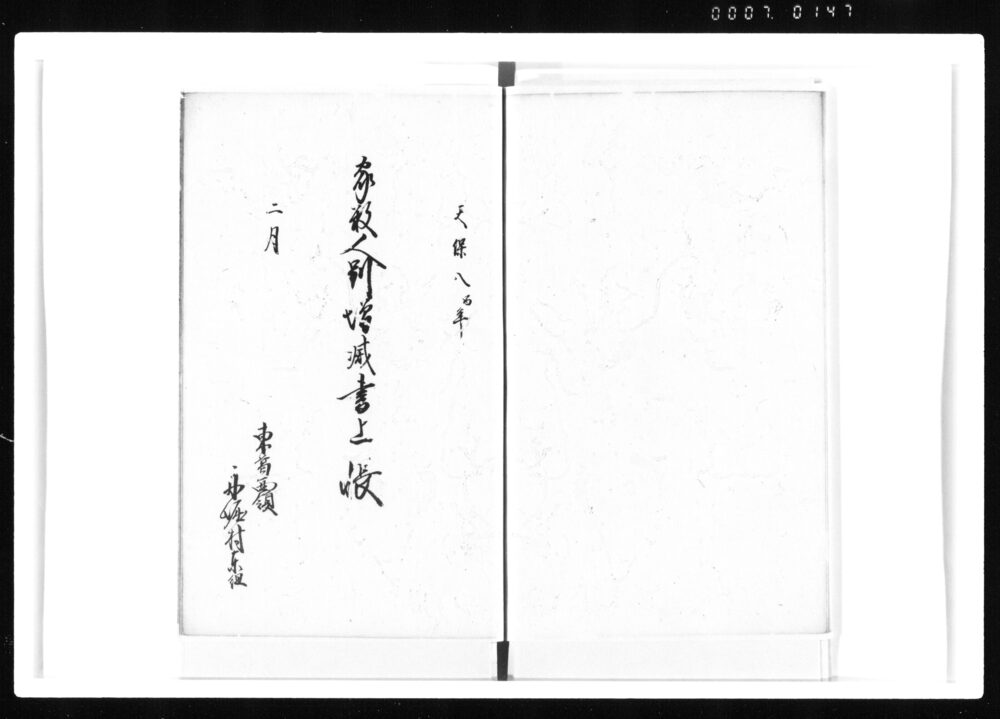 0007. 0147
天保八酉年
家数人別増減書上帳
二月
東葛西領
舟堀村東組